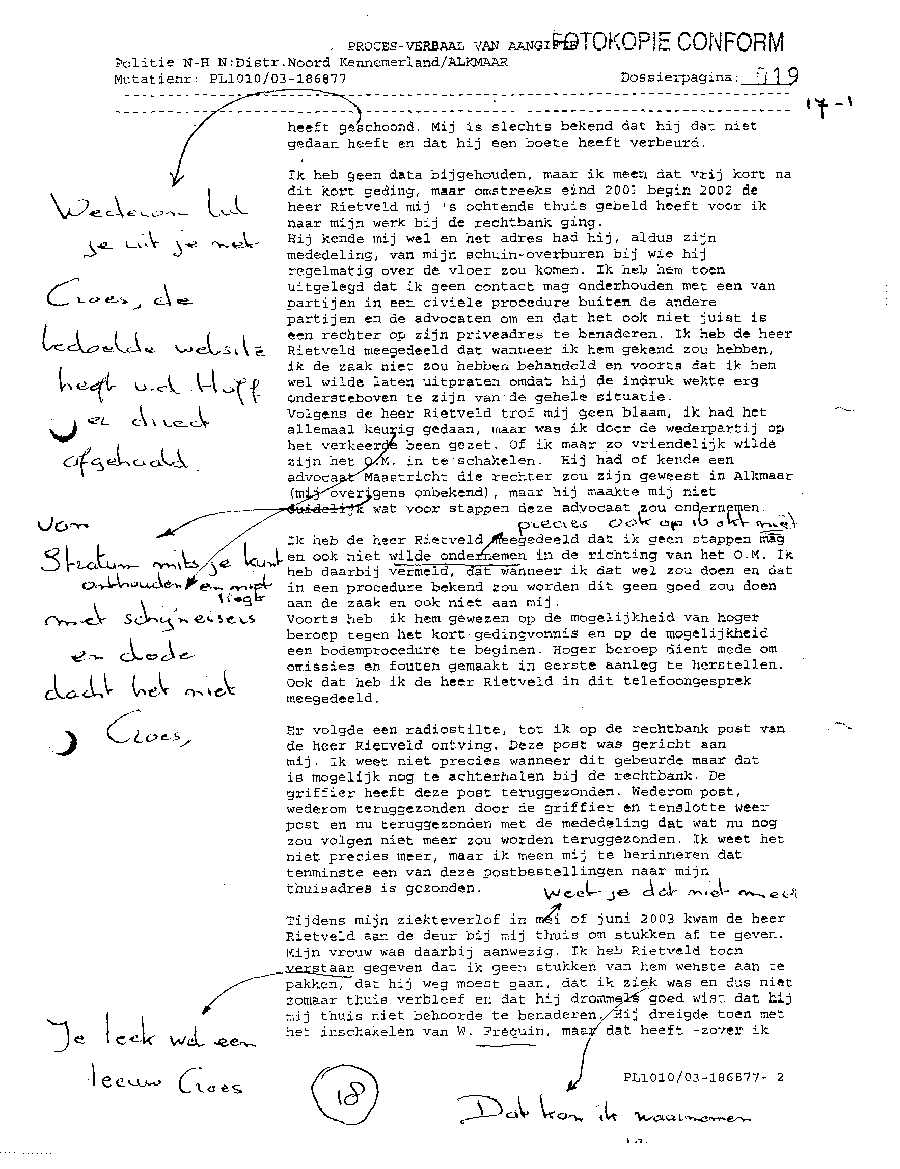 PROCES-VERBAAL VAN AANGIFTE
FOTOKOPIE CONFORM
Politie N-H N:Distr.Noord Kennemerland/ALKMAAR
Mutatienr: PL1010/03-186877
Dossierpagina: 019
17-1
heeft geschoond. Mij is slechts bekend dat hij dat niet
gedaan heeft en dat hij een boete heeft verbeurd.
Ik heb geen data bijgehouden, maar ik meen dat vrij kort na
dit kort geding, maar omstreeks eind 2001 begin 2002 de
heer Rietveld mij 's ochtends thuis gebeld heeft voor ik
naar mijn werk bij de rechtbank ging.
Hij kende mij wel en het adres had hij, aldus zijn
mededeling, van mijn schuin-overburen bij wie hij
regelmatig over de vloer zou komen. Ik heb hem toen
uitgelegd dat ik geen contact mag onderhouden met een van
partijen in een civiele procedure buiten de andere
partijen en de advocaten om en dat het ook niet juist is
een rechter op zijn priveadres te benaderen. Ik heb de heer
Rietveld meegedeeld dat wanneer ik hem gekend zou hebben,
ik de zaak niet zou hebben behandeld en voorts dat ik hem
wel wilde laten uitpraten omdat hij de indruk wekte erg
ondersteboven te zijn van de gehele situatie.
Volgens de heer Rietveld trof mij geen blaam, ik had het
allemaal keurig gedaan, maar was ik door de wederpartij op
het verkeerde been gezet. Of ik maar zo vriendelijk wilde
zijn het O.M. in te schakelen. Hij had of kende een
advocaat Maastricht die rechter zou zijn geweest in Alkmaar
(mij overigens onbekend), maar hij maakte mij niet
duidelijk wat voor stappen deze advocaat zou ondernemen.
precies ook op ib okt niet
Ik heb de heer Rietveld meegedeeld dat ik geen stappen mag
en ook niet wilde ondernemen in de richting van het O.M. Ik
heb daarbij vermeld, dat wanneer ik dat wel zou doen en dat
in een procedure bekend zou worden dit geen goed zou doen
aan de zaak en ook niet aan mij.
Voorts heb ik hem gewezen op de mogelijkheid van hoger
beroep tegen het kort-gedingvonnis en op de mogelijkheid
een bodemprocedure te beginen. Hoger beroep dient mede om
omissies en fouten gemaakt in eerste aanleg te herstellen.
Ook dat heb ik de heer Rietveld in dit telefoongesprek
meegedeeld.
Er volgde een radiostilte, tot ik op de rechtbank post van
de heer Rietveld ontving. Deze post was gericht aan
mij. Ik weet niet precies wanneer dit gebeurde maar dat
is mogelijk nog te achterhalen bij de rechtbank. De
griffier heeft deze post teruggezonden. Wederom post,
wederom teruggezonden door de griffier en tenslotte weer
post en nu teruggezonden met de mededeling dat wat nu nog
zou volgen niet meer zou worden teruggezonden. Ik weet het
niet precies meer, maar ik meen mij te herinneren dat
tenminste een van deze postbestellingen naar mijn
thuisadres is gezonden.
weet je dat niet meer
Tijdens mijn ziekteverlof in mei of juni 2003 kwam de heer
Rietveld aan de deur bij mij thuis om stukken af te geven.
Mijn vrouw was daarbij aanwezig. Ik heb Rietveld toen
verstaan gegeven dat ik geen stukken van hem wenste aan te
pakken, dat hij weg moest gaan, dat ik ziek was en dus niet
zomaar thuis verbleef en dat hij drommels goed wist dat hij
mij thuis niet behoorde te benaderen. Hij dreigde toen met
het inschakelen van W. Frequin, maar dat heeft -zover ik
PL1010/03-186877- 2
Wederom lul
je uit je nek
Croes, de
bedoelde website
heeft v.d. Hoff
er direct
afgehaald.
von
Stratum mits je kunt
onthouden en niet
liegt
met schijneisers
en dode
dacht het niet
Croes,
Je leek wel een
leeuw Croes
18
Dat kon ik waarnemen